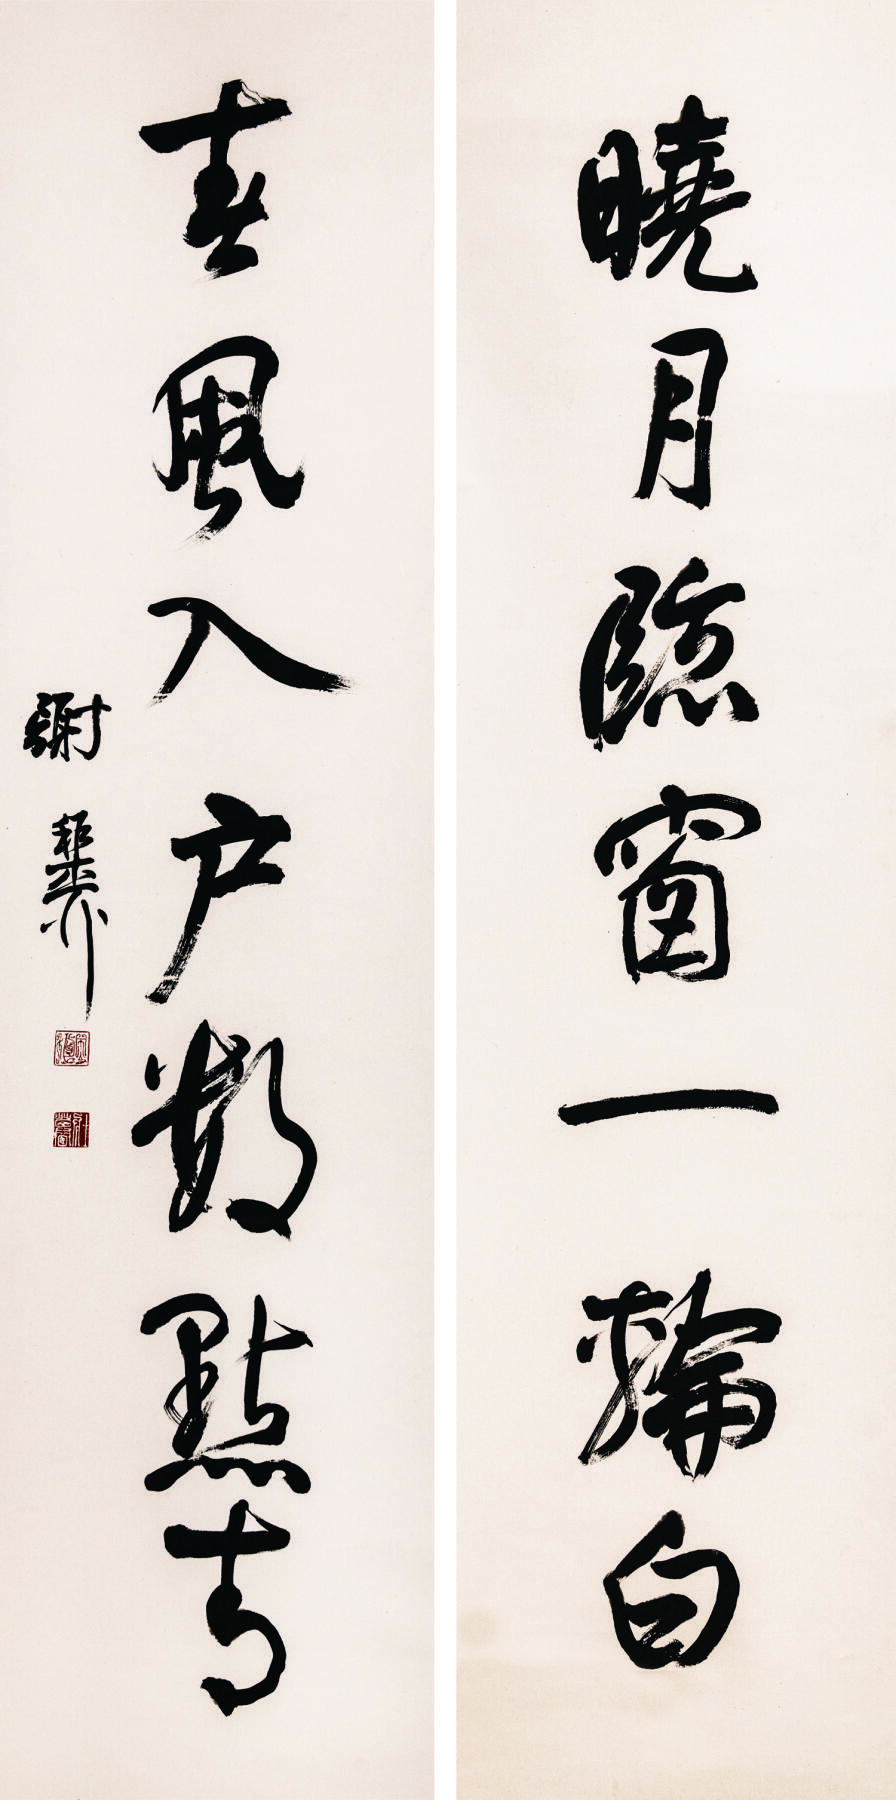 曉月臨窗一輪白
春風入戶數點青
謝稚柳